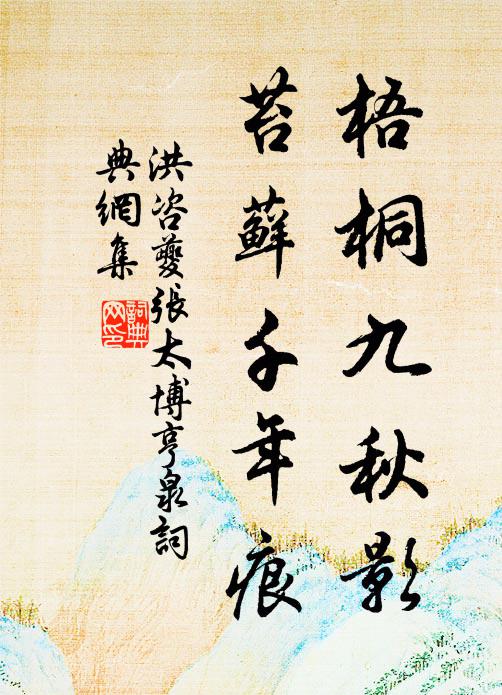 梧桐九秋影
苔蘚千年痕
洪咨夔張太博亨泉詞
典網集
詞典网印